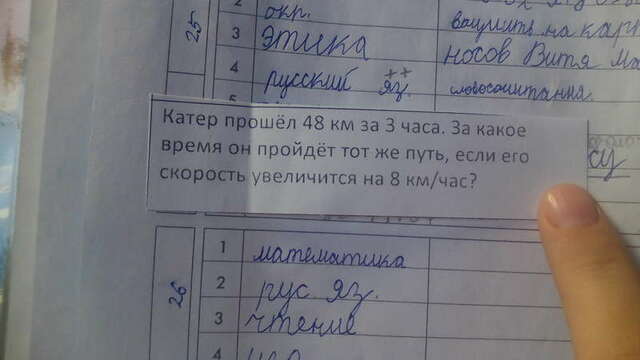 2
окр.
25
3
этика
4
русский яз.
носов Витя
словосочитания.
5
Катер прошёл 48 км за 3 часа. За какое
время он пройдёт тот же путь, если его
скорость увеличится на 8 км/час?
26
1
математика
2
рус яз.
3
чтение
4